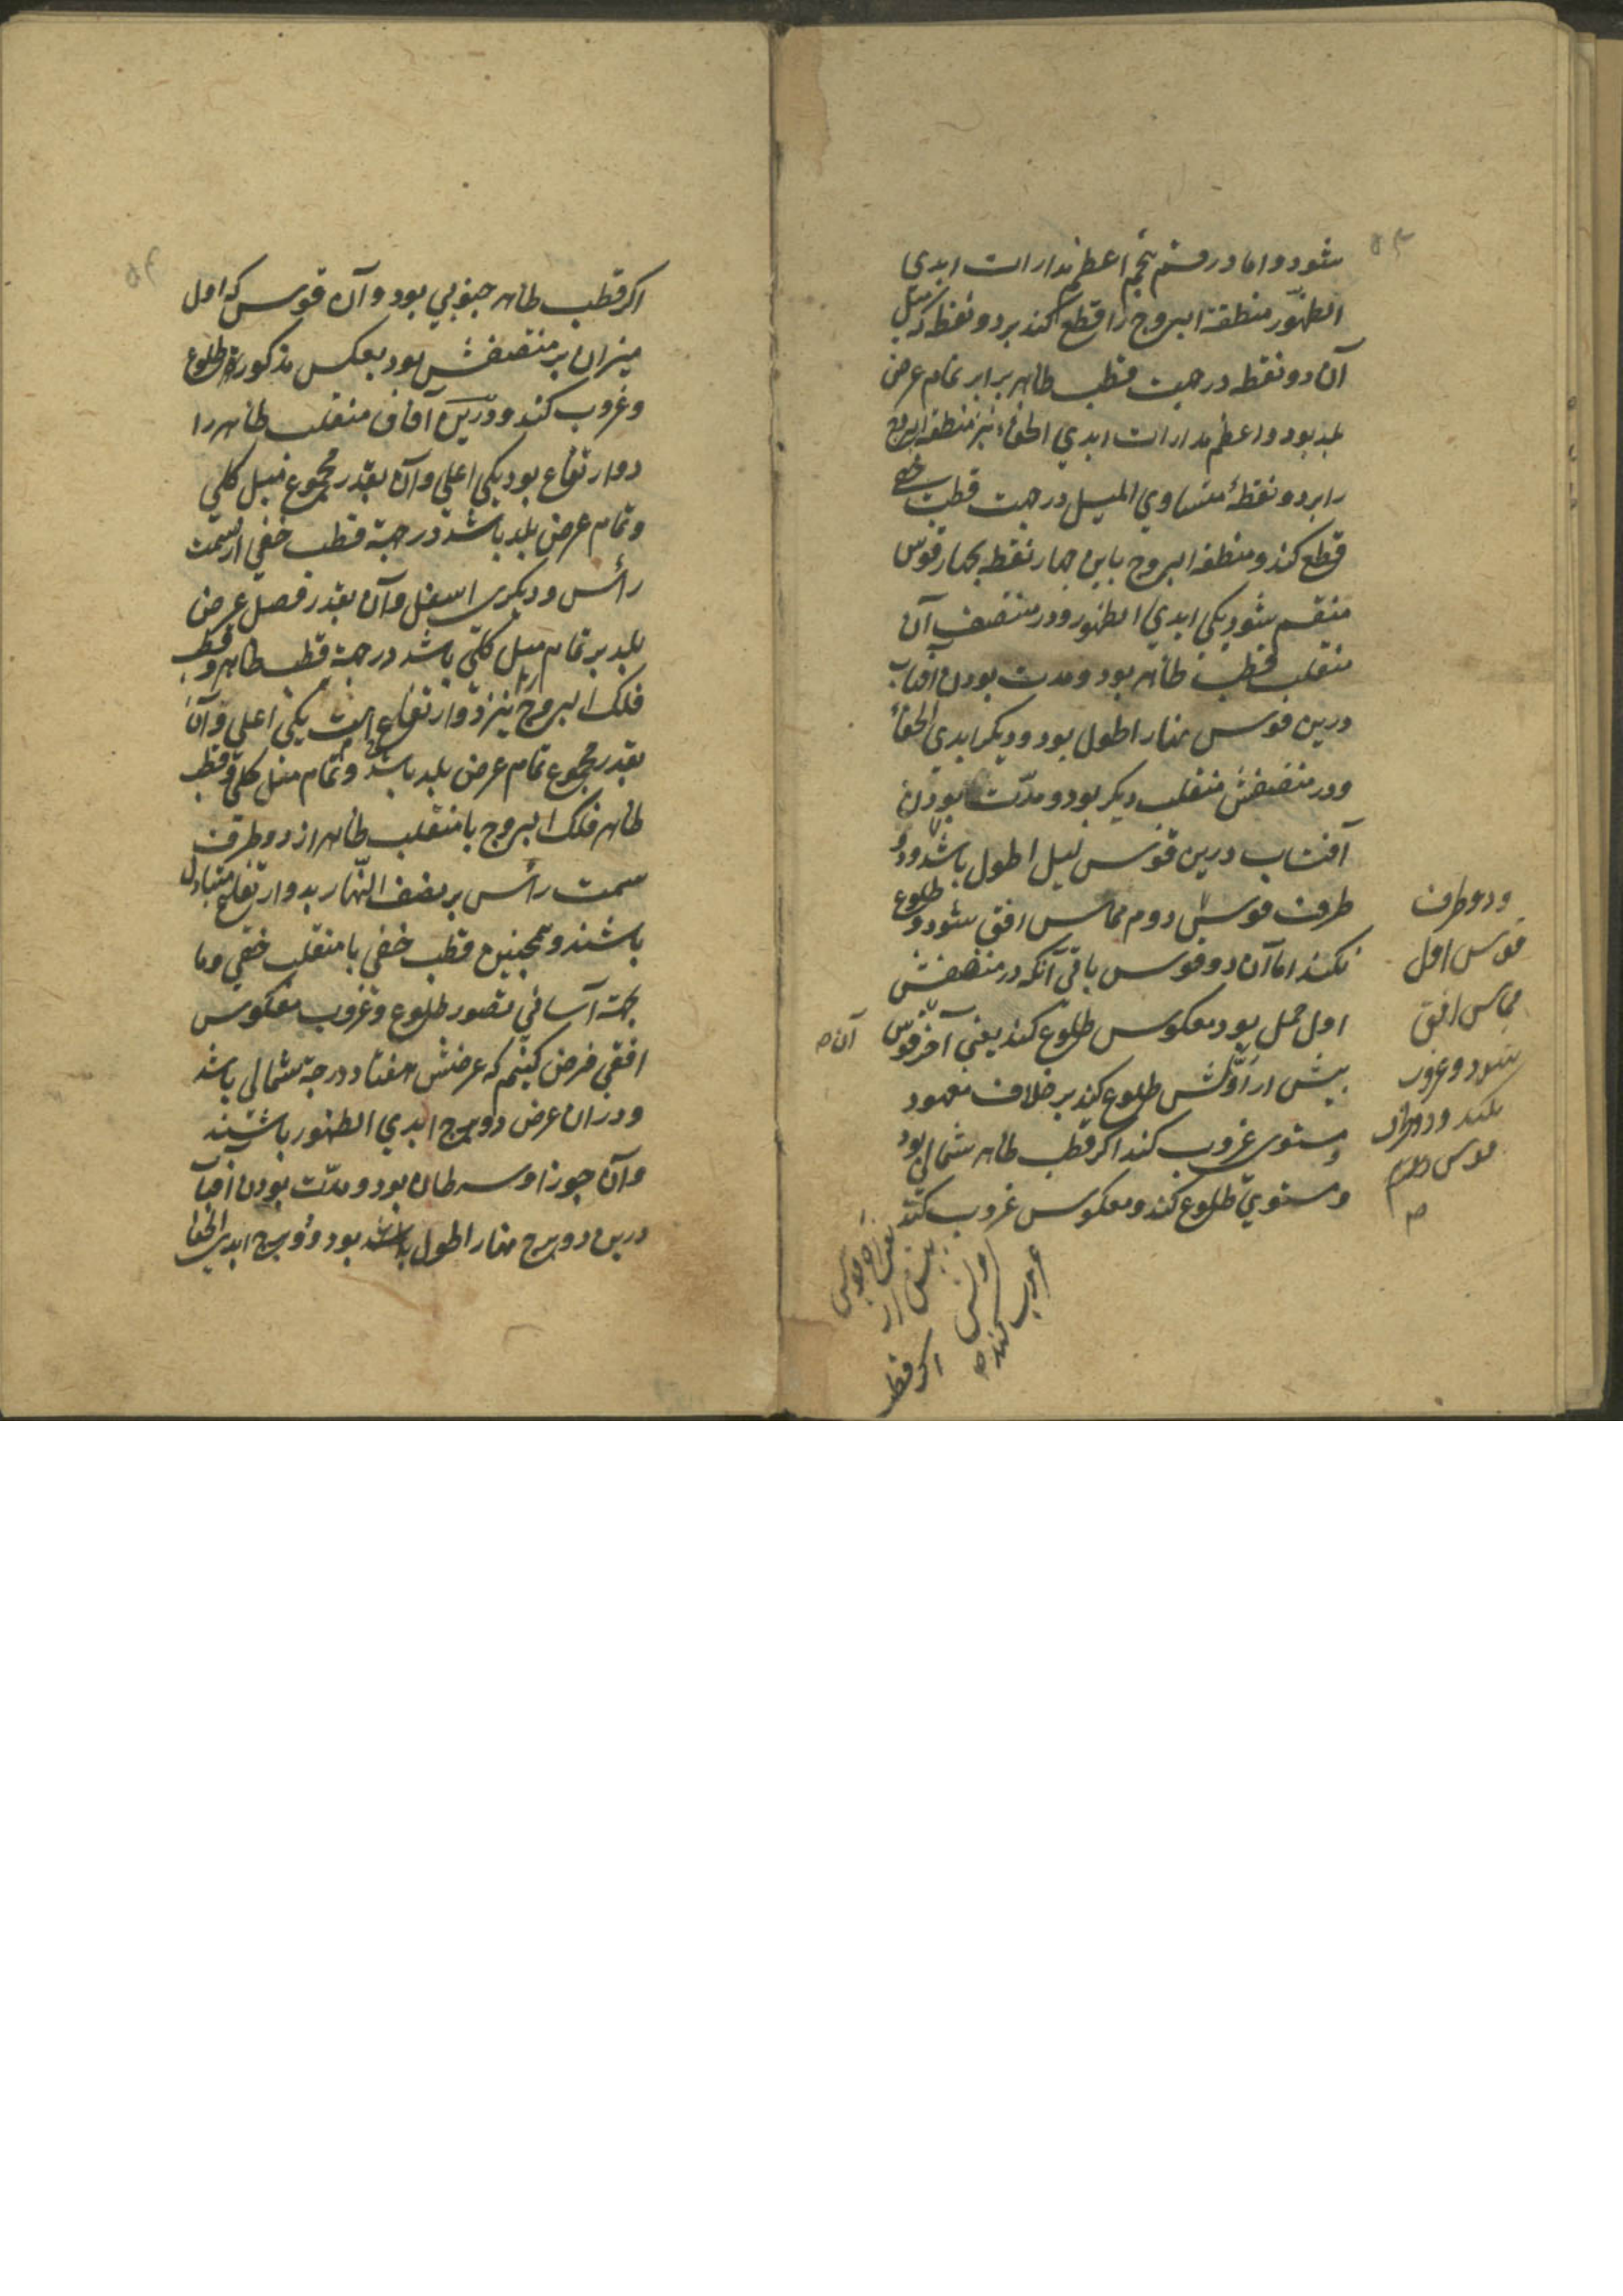 شود و اما در قسم پنجم اعظم مدارات ابدی
الظهور منطقة البروج را قطع کند بر دو نقطه که میل
آن دو نقطه در جهت قطب ظاهر برابر تمام عرض
بلد بود و اعظم مدارات ابدي الخفاء نیز منطقة البروج
را بر دو نقطهٔ متساوي المیل در جهت قطب خفی
قطع کند و منطقة البروج باین چهار نقطه بچهار قوس
منقسم شود یکی ابدي الظهور و در منتصف آن
منقلب قطب ظاهر بود و مدت بودن آفتاب
درین قوس نهار اطول بود و دیگر ابدی الخفاء
و در منتصفش منقلب دیگر بود و مدّت بودن
آفتاب درین قوس لیل اطول باشد و دو
طرف قوس دوم مماس افق شود و طلوع
نکند اما آن دو قوس باقی آنکه در منتصفش
اول حمل بود معکوس طلوع کند یعنی آخر قوس
پیش از اوّلش طلوع کند بر خلاف معهود
و مستوی غروب کند اگر قطب ظاهر شمالی بود
و مستوي طلوع کند و معکوس غروب کند
ودو طرف
قوس اول
مماس افق
شود و غروب
نکند و دو طرف
قوس دوم
صه
آن صه
یعنی آخر قوس
پیش از
اولش
غروب کند صه
اگر قطب
اگر قطب ظاهر جنوبي بود و آن قوس که اول
میزان بر منتصفش بود بعکس مذکور طلوع
و غروب کند و درین آفاق منقلب ظاهر را
دو ارتفاع بود یکی اعلی و آن بقدر مجموع میل کلي
و تمام عرض بلد باشد در جهة قطب خفي از سمت
رأس و دیگری اسفل و آن بقدر فصل عرض
بلد بر تمام میل کلی باشد در جهة قطب ظاهر و قطب
فلک البروج را نیز دو ارتفاع است یکی اعلی و آن
بقدر مجموع تمام عرض بلد باشد و تمام میل کلی و قطب
ظاهر فلک البروج با منقلب ظاهر از دو طرف
سمت رأس بر نصف النّهار بدو ارتفاع متبادل
باشند و همچنین قطب خفي با منقلب خفي و ما
بجهة آساني تصور طلوع و غروب معکوس
افقي فرض کنیم که عرضش هفتاد درجة شمالي باشد
و در ان عرض دو برج ابدي الظهور باشند
و آن جوزا و سرطان بود و مدّت بودن آفتاب
درین دو برج نهار اطول باشد بود و دو برج ابدي الخفا